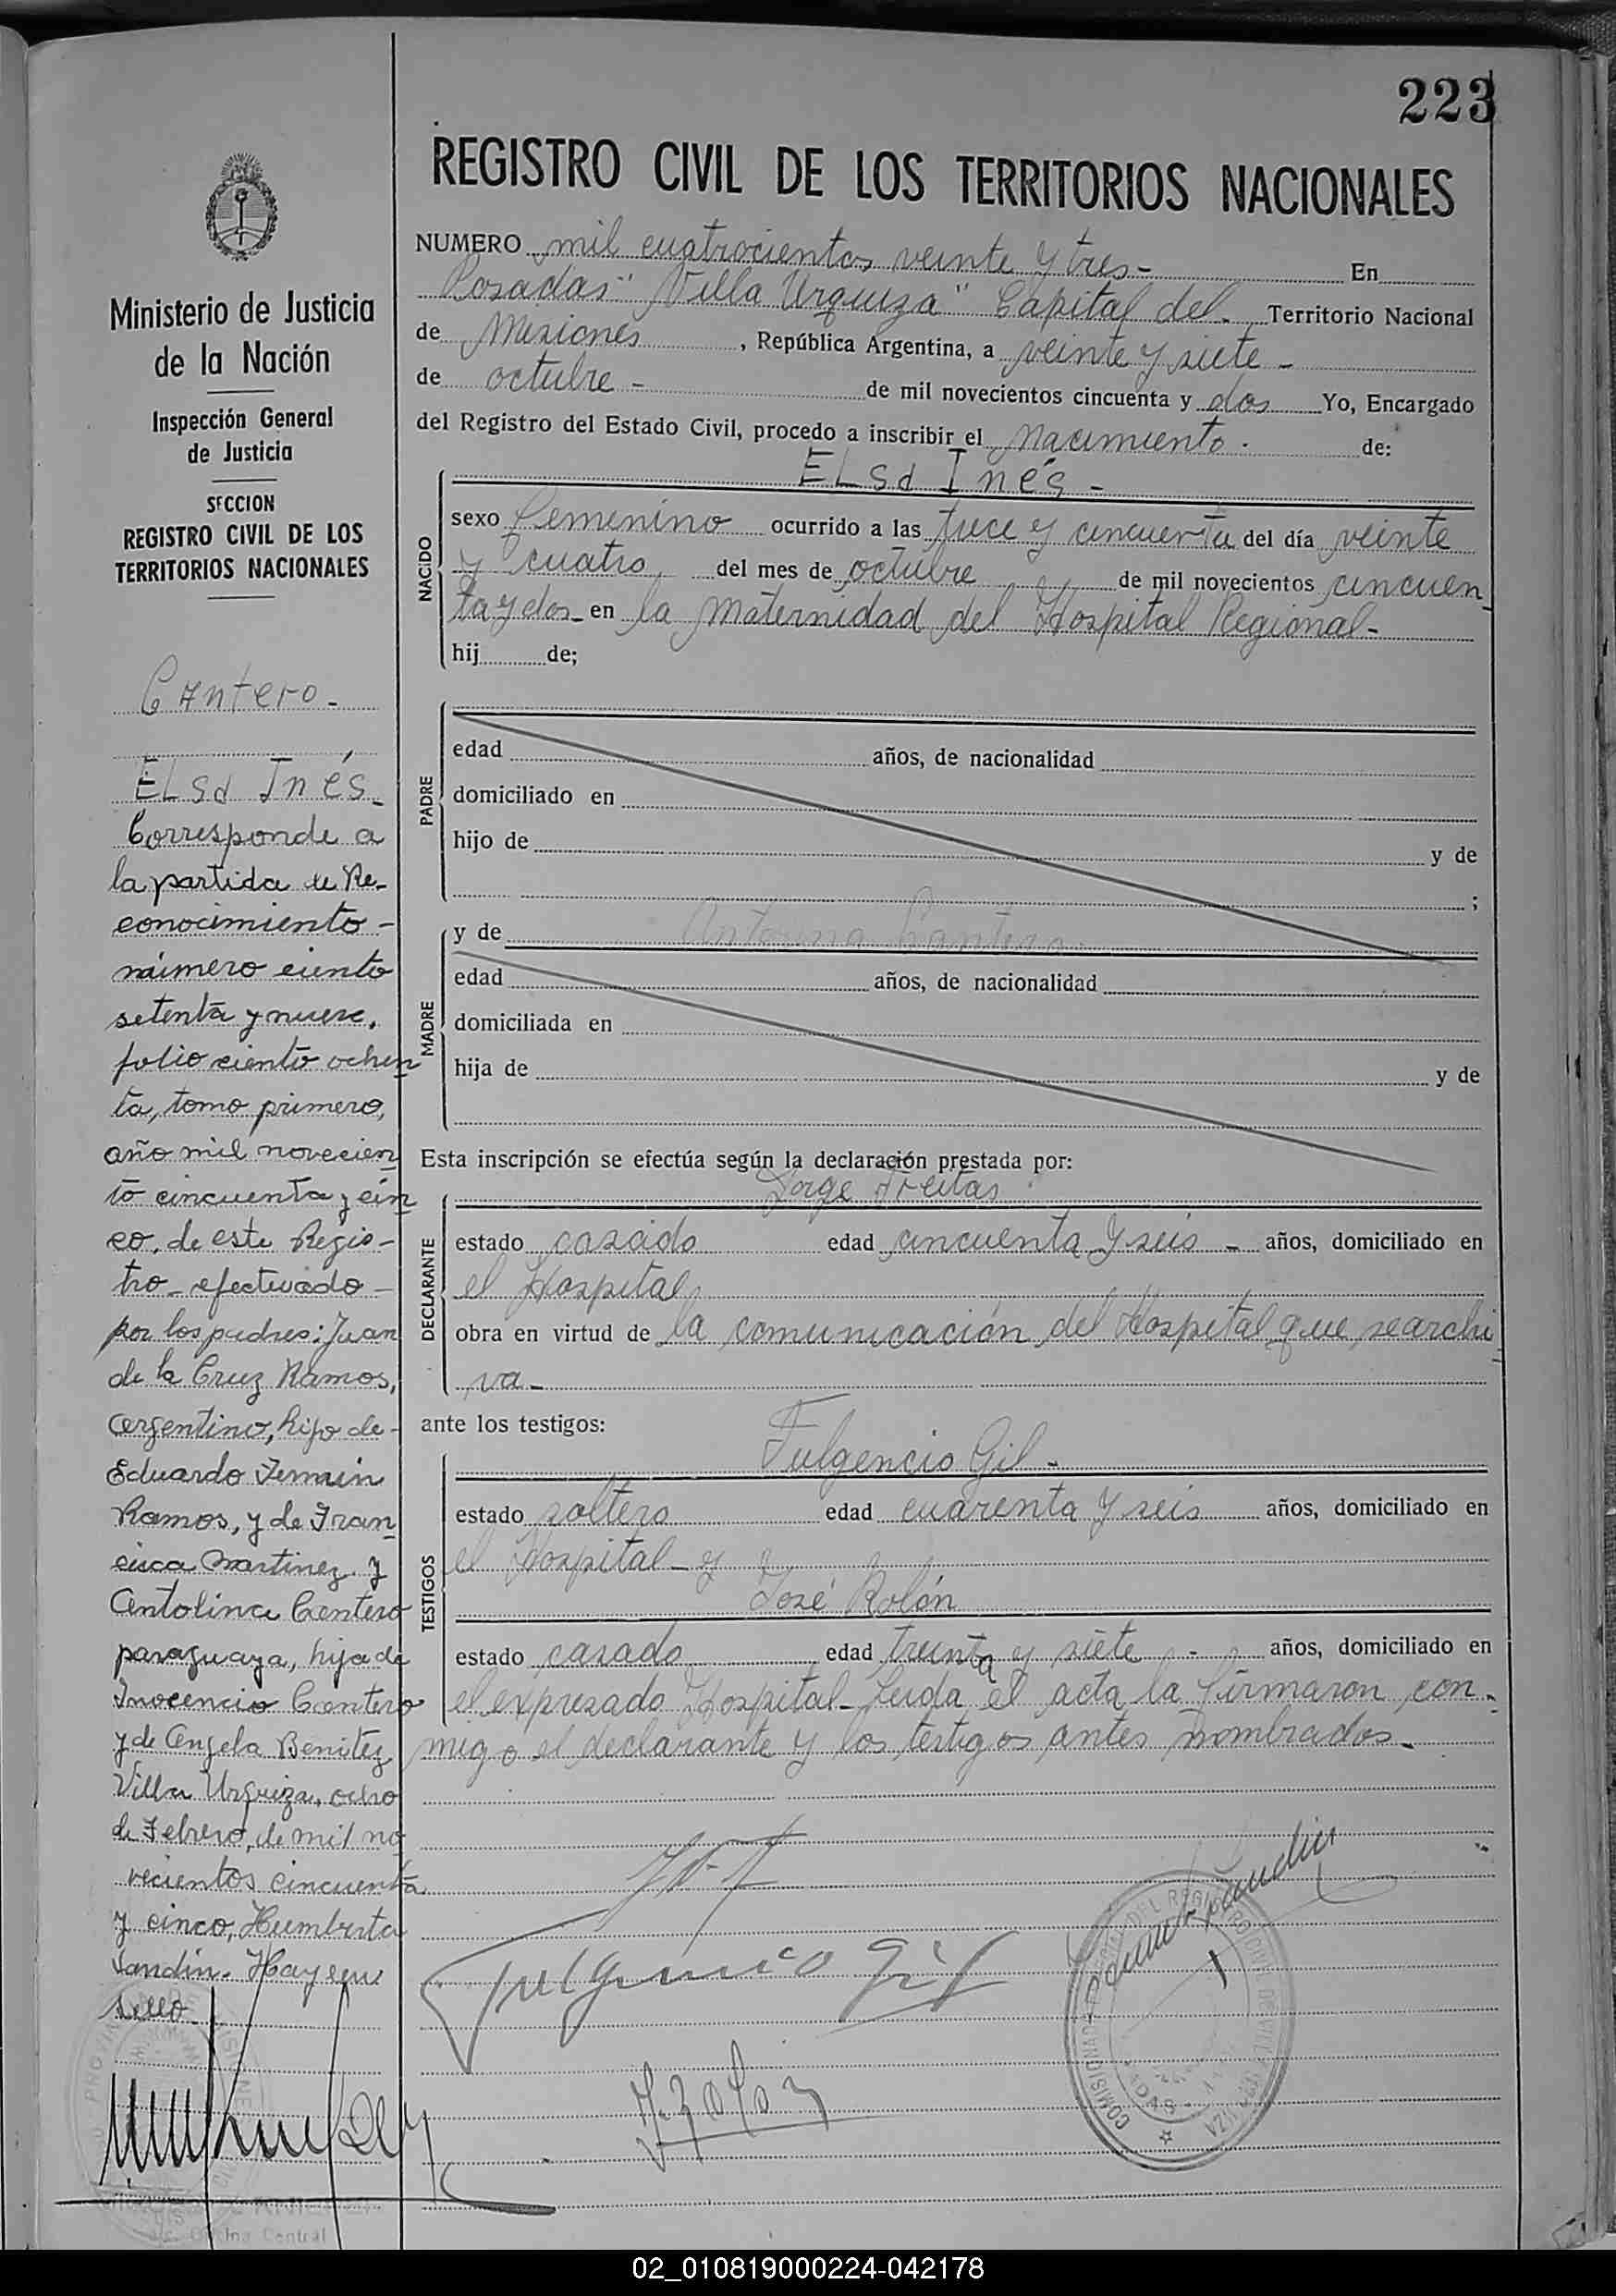 223
REGISTRO CIVIL DE LOS TERRITORIOS NACIONALES
NUMERO mil cuatrocientos veinte y tres- En
Posadas "Villa Urquiza" Capital del. Territorio Nacional
de Misiones, República Argentina, a veinte y siete -
de octubre - de mil novecientos cincuenta y dos Yo, Encargado
del Registro del Estado Civil, procedo a inscribir el nacimiento. de:
ELsa Inés -
NACIDO
sexo femenino ocurrido a las trece y cincuenta del día veinte
y cuatro del mes de octubre de mil novecientos cincuen
ta y dos en la Maternidad del Hospital Regional-
hij de;
PADRE
edad años, de nacionalidad
domiciliado en
hijo de y de
;
MADRE
y de Antonina Cantero
edad años, de nacionalidad
domiciliada en
hija de y de
Esta inscripción se efectúa según la declaración prestada por:
Jorge Freitas
DECLARANTE
estado casado edad cincuenta y seis - años, domiciliado en
el Hospital
obra en virtud de la comunicación del Hospital que se archi
va-
ante los testigos:
Fulgencio Gil -
TESTIGOS
estado soltero edad cuarenta y seis años, domiciliado en
el Hospital - y
José Rolón
estado casado edad treinta y siete - años, domiciliado en
el expresado Hospital- Leida el acta la firmaron con-
migo el declarante y los testigos antes nombrados-
Fulgencio Gil
J. Rolon
Ministerio de Justicia
de la Nación
Inspección General
de Justicia
SECCION
REGISTRO CIVIL DE LOS
TERRITORIOS NACIONALES
Cantero-
ELsa Inés-
Corresponde a
la partida de Re-
conocimiento -
número ciento
setenta y nueve,
folio ciento ochen
ta, tomo primero,
año mil novecien
to cincuenta y cin
co, de este Regis-
tro - efectuado -
por los padres: Juan
de la Cruz Ramos,
argentino, hijo de -
Eduardo Fermin
Ramos, y de Fran
cisca Martinez y
Antolina Cantero
paraguaya, hija de
Inocencio Cantero
y de Angela Benitez
Villa Urquiza, ocho
de Febrero, de mil no
vecientos cincuenta
y cinco, Humberto
Landin. Hay un
sello
Oficina Central
02_010819000224-042178